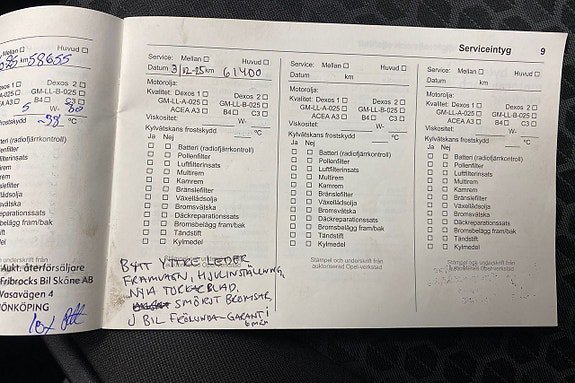 Serviceintyg 9
Mellan ☐ Huvud ☐
km 58655
Dexos 2 ☐
GM-LL-B-025 ☐
B4 ☐ C3
5 W- 30
frostskydd °C
(radiofjärrkontroll)
filterinsats
reparationssats
belägg fram/bak
Aukt. återförsäljare
Fribrocks Bil Skåne AB
Vasavägen 4
JÖNKÖPING
Service: Mellan ☐ Huvud ☐
Datum 3/12-25 km 61400
Motorolja:
Kvalitet: Dexos 1 ☐ Dexos 2 ☐
GM-LL-A-025 ☐ GM-LL-B-025 ☐
ACEA A3 ☐ B4 ☐ C3 ☐
Viskositet: W-
Kylvätskans frostskydd °C
Ja Nej
☐ ☐ Batteri (radiofjärrkontroll)
☐ ☐ Pollenfilter
☐ ☐ Luftfilterinsats
☐ ☐ Multirem
☐ ☐ Kamrem
☐ ☐ Bränslefilter
☐ ☐ Växellådsolja
☐ ☐ Bromsvätska
☐ ☐ Däckreparationssats
☐ ☐ Bromsbelägg fram/bak
☐ ☐ Tändstift
☐ ☐ Kylmedel
BYTT YTTRE LEDER
FRAMVAGN, HJULINSTÄLLNING,
NYA TORKARBLAD,
SMÖRJT BROMSAR,
J BIL FRÖLUNDA-GARANTI
6 MÅN
Service: Mellan ☐ Huvud ☐
Datum km
Motorolja:
Kvalitet: Dexos 1 ☐ Dexos 2 ☐
GM-LL-A-025 ☐ GM-LL-B-025 ☐
ACEA A3 ☐ B4 ☐ C3 ☐
Viskositet: W-
Kylvätskans frostskydd °C
Ja Nej
☐ ☐ Batteri (radiofjärrkontroll)
☐ ☐ Pollenfilter
☐ ☐ Luftfilterinsats
☐ ☐ Multirem
☐ ☐ Kamrem
☐ ☐ Bränslefilter
☐ ☐ Växellådsolja
☐ ☐ Bromsvätska
☐ ☐ Däckreparationssats
☐ ☐ Bromsbelägg fram/bak
☐ ☐ Tändstift
☐ ☐ Kylmedel
Stämpel och underskrift från
auktoriserad Opel-verkstad
Service: Mellan ☐ Huvud ☐
Datum km
Motorolja:
Kvalitet: Dexos 1 ☐ Dexos 2 ☐
GM-LL-A-025 ☐ GM-LL-B-025 ☐
ACEA A3 ☐ B4 ☐ C3 ☐
Viskositet: W-
Kylvätskans frostskydd °C
Ja Nej
☐ ☐ Batteri (radiofjärrkontroll)
☐ ☐ Pollenfilter
☐ ☐ Luftfilterinsats
☐ ☐ Multirem
☐ ☐ Kamrem
☐ ☐ Bränslefilter
☐ ☐ Växellådsolja
☐ ☐ Bromsvätska
☐ ☐ Däckreparationssats
☐ ☐ Bromsbelägg fram/bak
☐ ☐ Tändstift
☐ ☐ Kylmedel
Stämpel och underskrift från
auktoriserad Opel-verkstad